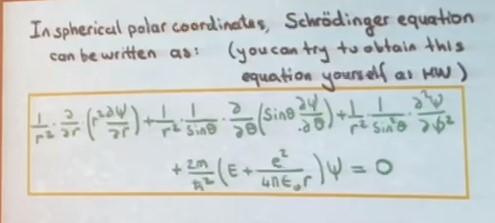 In spherical polar coordinates, Schrödinger equation
can be written as: (you can try to obtain this
equation yourself as HW)
1/r² · ∂/∂r (r² ∂ψ/∂r) + 1/r² · 1/Sinθ · ∂/∂θ (Sinθ ∂ψ/∂θ) + 1/r² · 1/Sin²θ · ∂²ψ/∂φ²
+ 2m/ħ² (E + e²/4πε₀r) ψ = 0